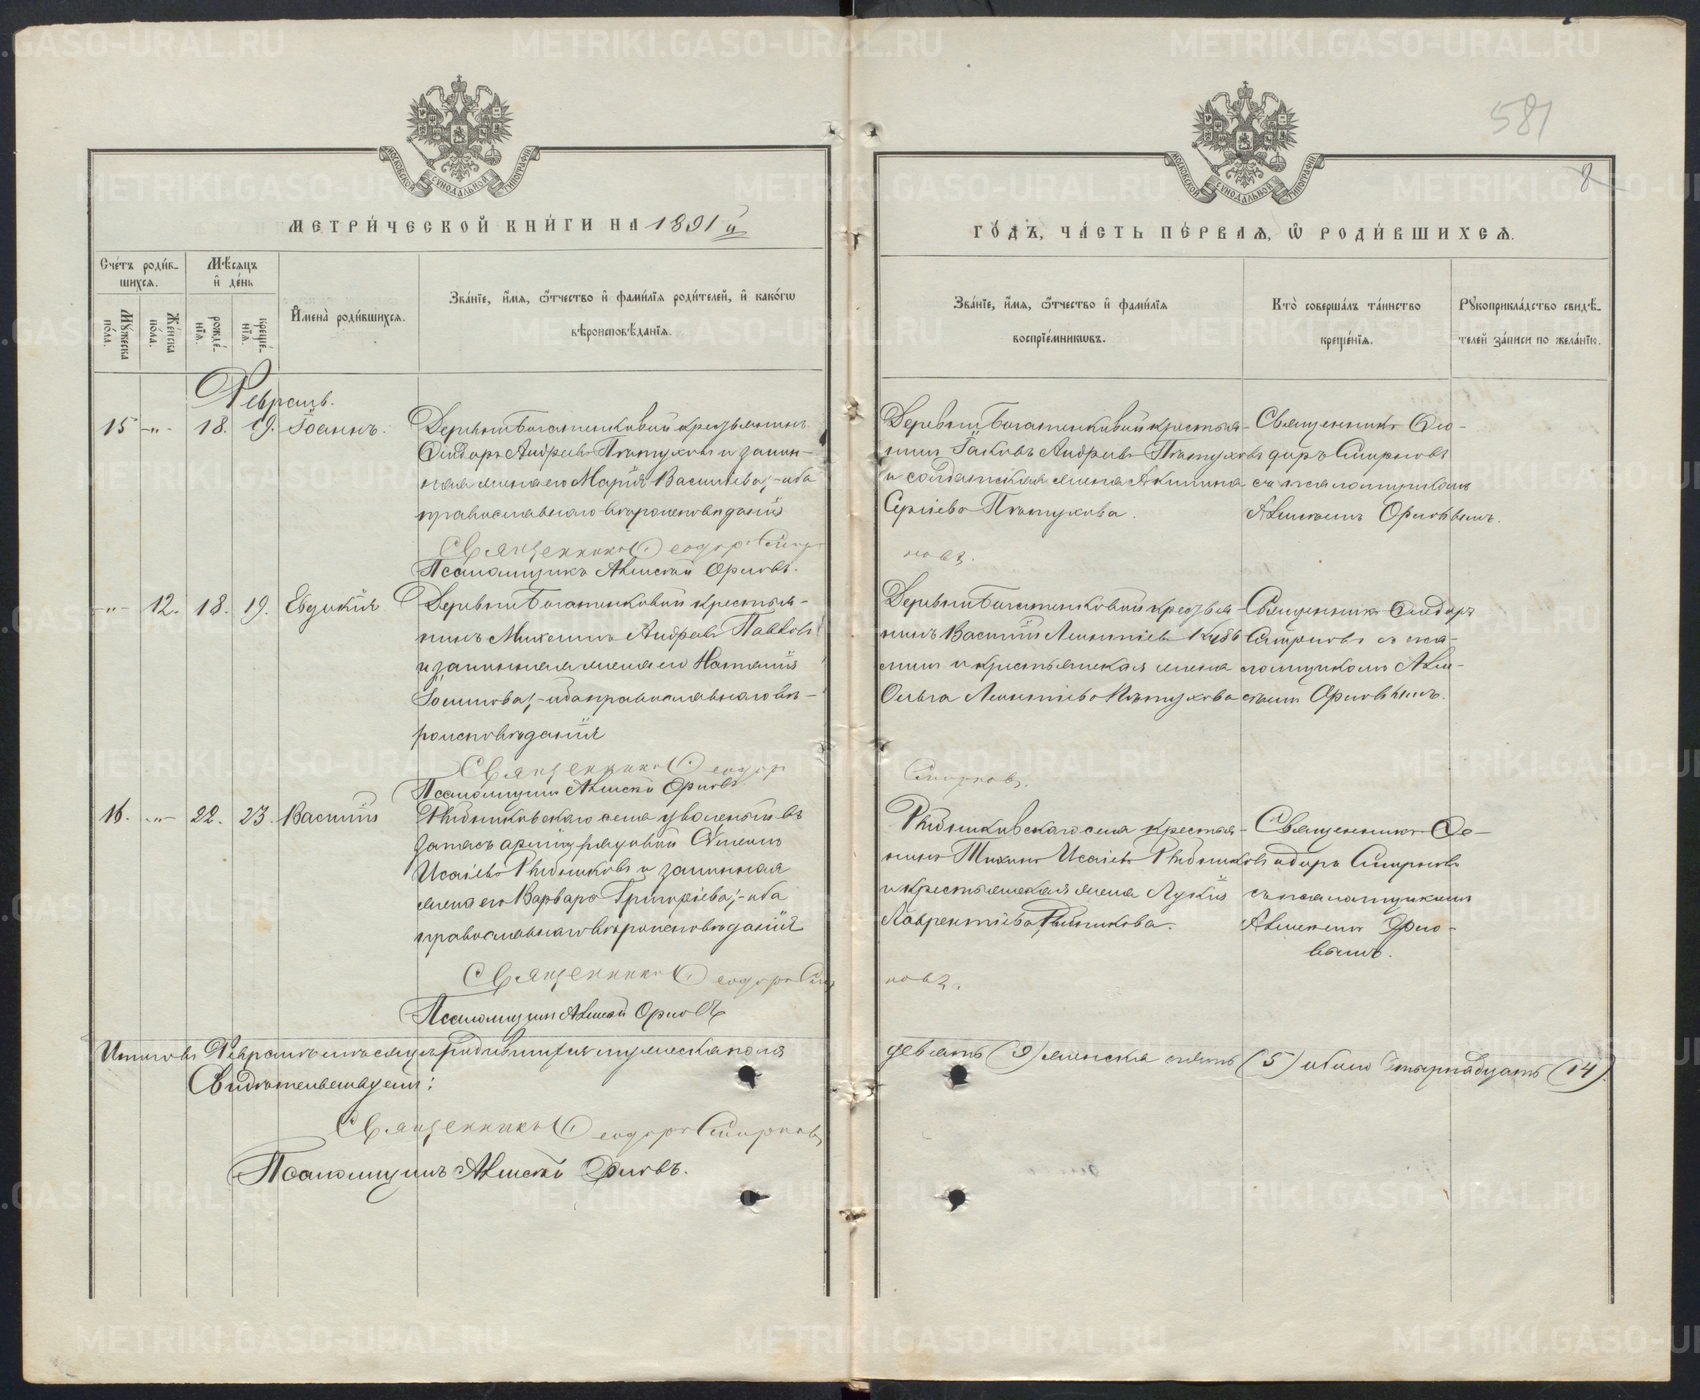 581
8
МЕТРИ́ЧЕСКОЙ КНИ́ГИ НА 1891 й
ГО́ДЪ, ЧА́СТЬ ПЕ́РВАЯ, Ѡ РОДИ́ВШИХСЯ.
Сче́тъ роди́в-
шихся.
Мѣ́сяцъ
и҆ де́нь
Му́жеска
по́ла.
Же́нска
по́ла.
рожде́-
нїя.
креще́-
нїя.
И҆мена̀ роди́вшихся.
Зва́нїе, и҆́мя, ѻ҆́тчество и҆ фами́лїя роди́телей, и҆ како́гѡ
вѣроисповѣ́данїя.
Зва́нїе, и҆́мя, ѻ҆́тчество и҆ фами́лїя
воспрїе́мникѡвъ.
Кто̀ соверша́лъ та́инство
креще́нїя.
Рꙋкоприкла́дство свидѣ́-
телей за́писи по жела́нїю.
Февраль.
15 -"- 18. 19. Іоаннъ.
Деревни Богатенковой крестьянинъ
Ѳеодоръ Андреевъ Пѣтуховъ и закон-
ная жена его Марія Васильева, - оба
православнаго вѣроисповѣданія
Священникъ Ѳеодоръ Смир
новъ.
Псаломщикъ Алексѣй Орловъ.
Деревни Богатенковой крестья-
нинъ Іаковъ Андреевъ Пѣтуховъ
и солдатская жена Акилина
Сергіева Пѣтухова.
Священникъ Ѳео-
доръ Смирновъ
съ псаломщикомъ
Алексѣемъ Орловымъ.
-"- 12. 18. 19. Евдокія
Деревни Богатенковой крестья-
нинъ Михаилъ Андреевъ Павловъ
и законная жена его Наталія
православнаго вѣ-
роисповѣданія
Священникъ Ѳеодоръ
Смирновъ.
Псаломщикъ Алексѣй Орловъ
Деревни Богатенковой крестья-
нинъ Василій Леонтіевъ
и крестьянская жена
Ольга Леонтіева Пѣтухова
Священникъ Ѳеодоръ
Смирновъ съ пса-
ломщикомъ Алек-
сѣемъ Орловымъ.
16. -"- 22. 23. Василій
села уволенный въ
запасъ арміи рядовой Симеонъ
Исаіевъ и законная
жена его Варвара Григорьева, - оба
православнаго вѣроисповѣданія
Священникъ Ѳеодоръ Смир
новъ.
Псаломщикъ Алексѣй Орловъ
села крестья-
нинъ Тихонъ Исаіевъ
и крестьянская жена Лукія
Лаврентіева
Священникъ Ѳе-
одоръ Смирновъ
съ псаломщикомъ
Алексѣемъ Орло-
вымъ.
Итого въ Февралѣ мѣсяцѣ родившихся мужеска пола девять (9) женска пять (5) обоего четырнадцать (14).
Свидѣтельствуемъ:
Священникъ Ѳеодоръ Смирновъ
Псаломщикъ Алексѣй Орловъ.